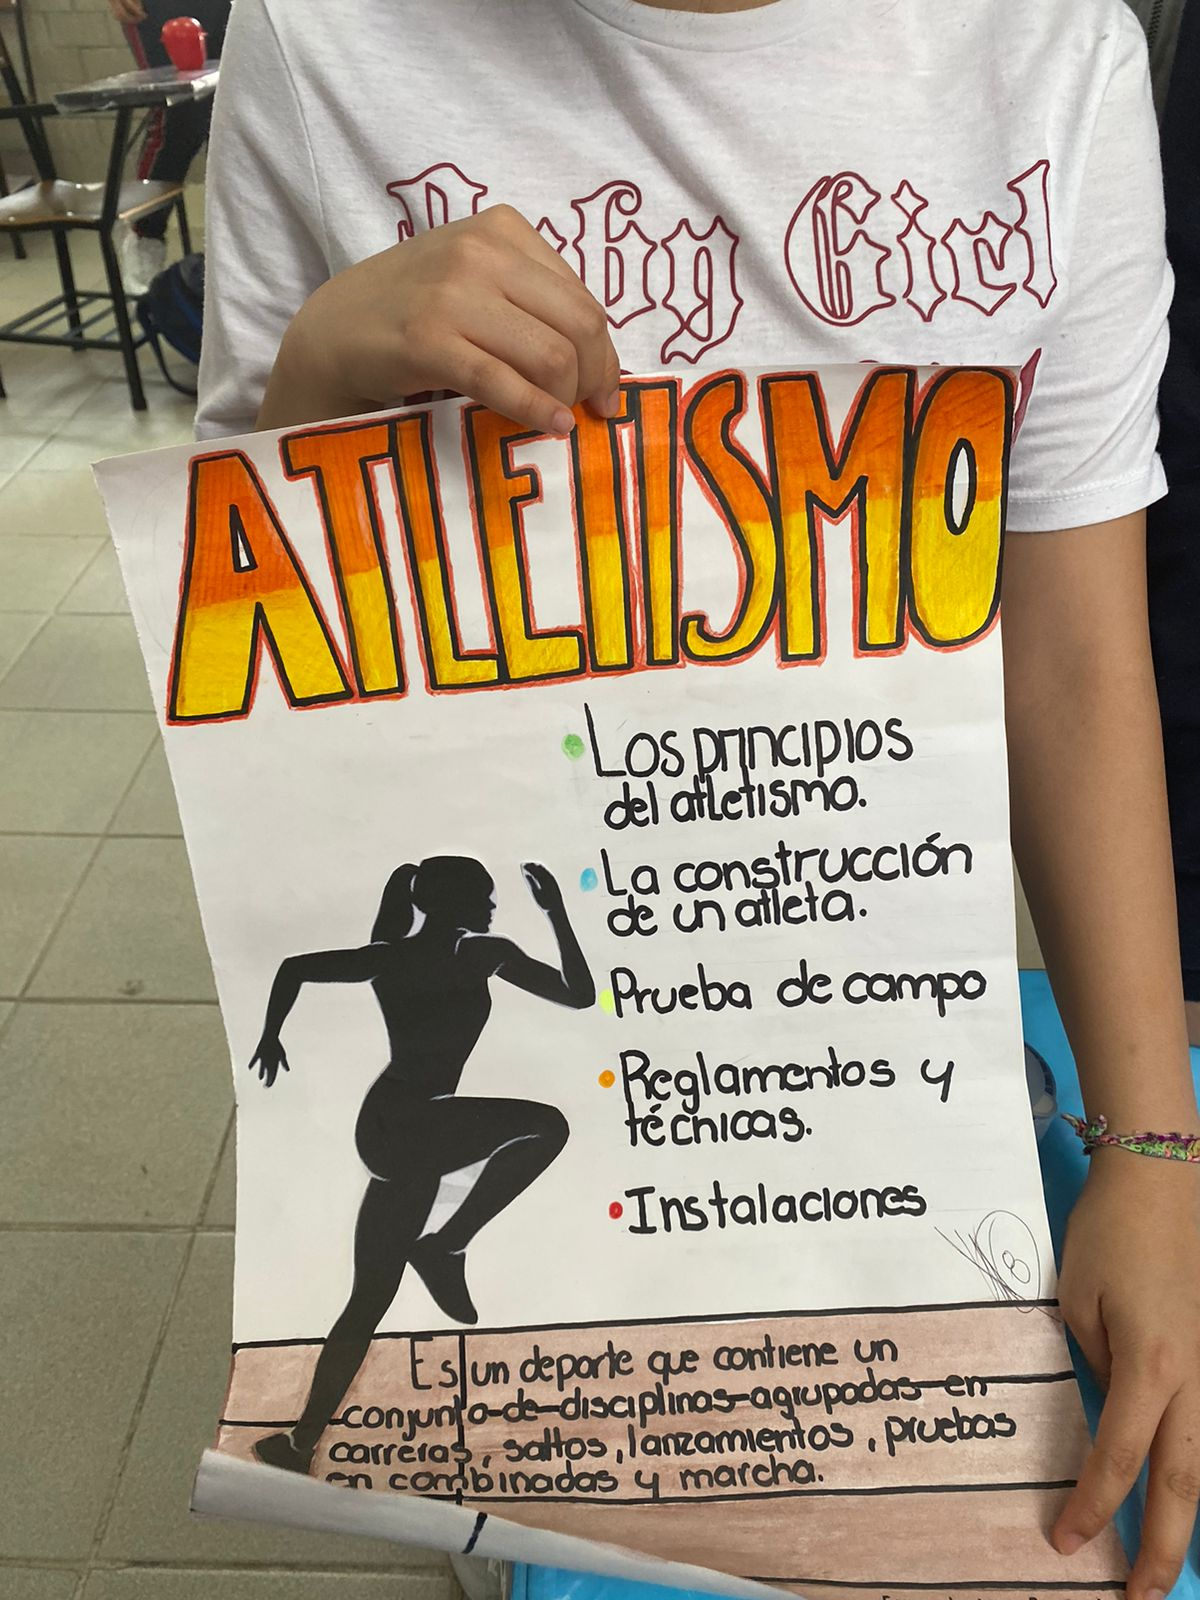 Baby Girl
ATLETISMO
Los principios
del atletismo.
La construcción
de un atleta.
Prueba de campo
Reglamentos y
técnicas.
Instalaciones
Es un deporte que contiene un
conjunto de disciplinas agrupadas en
carreras, saltos, lanzamientos, pruebas
en combinadas y marcha.